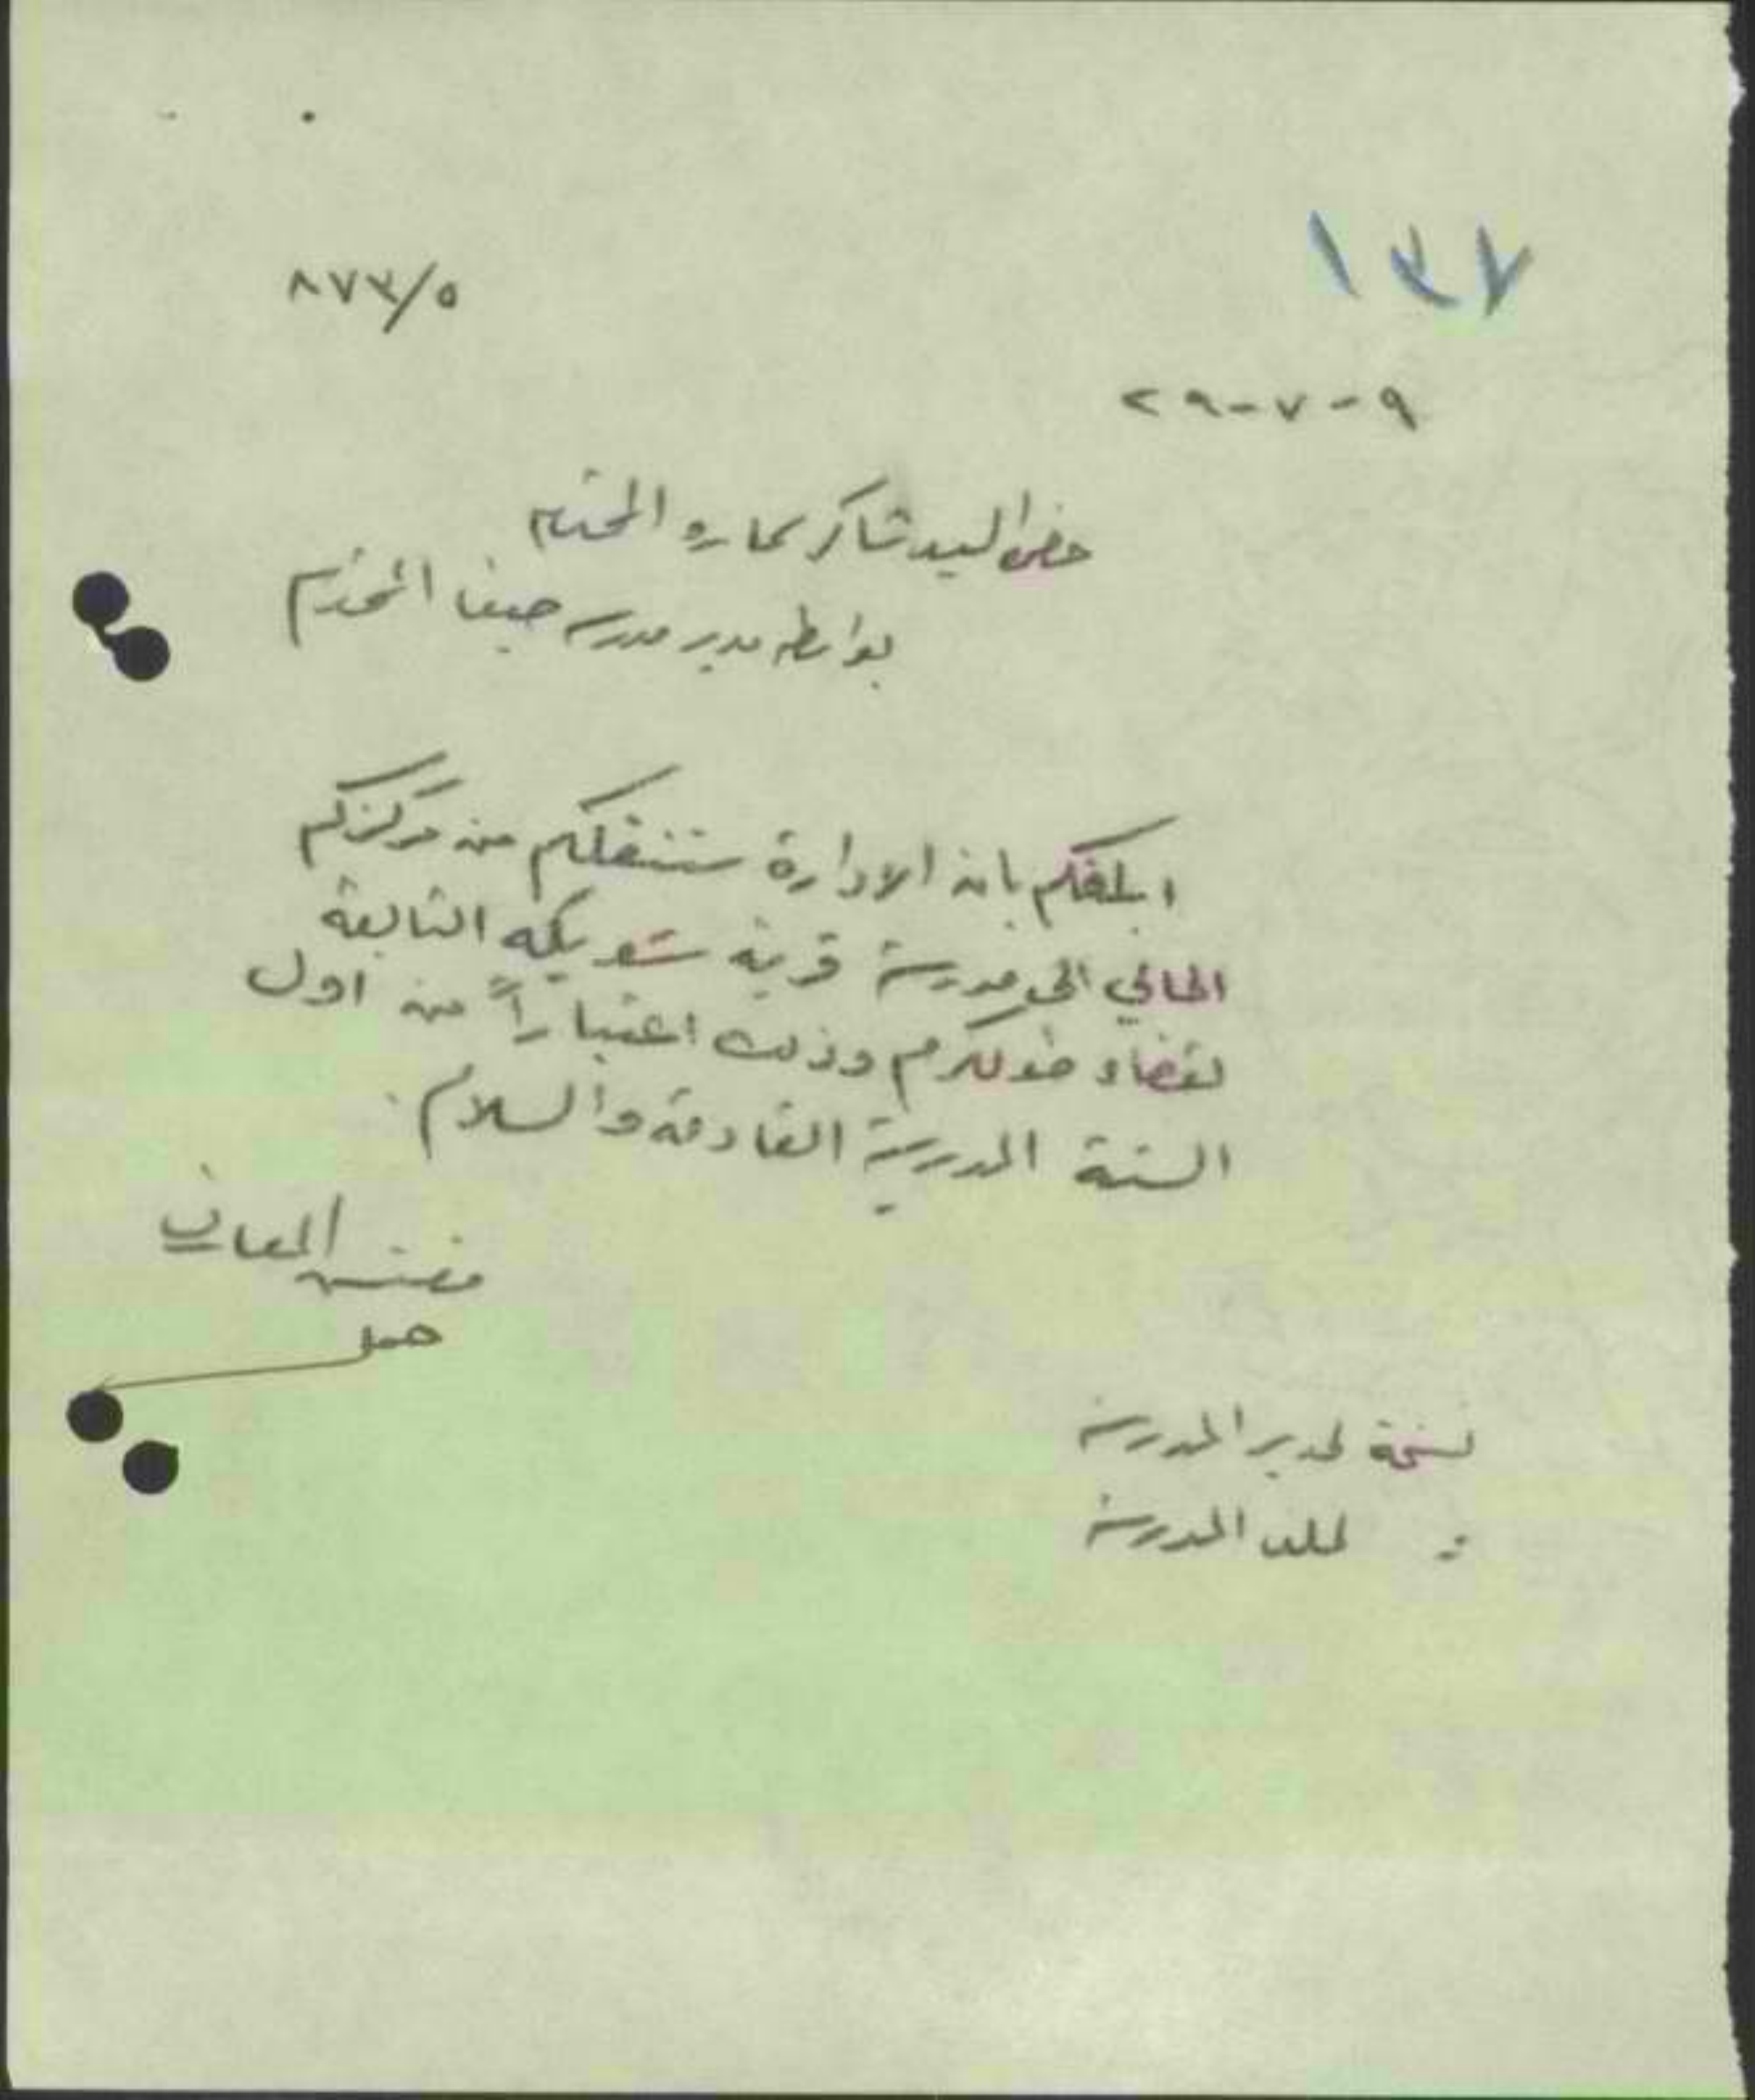 ١٣٧
٨٧٣/٥
٢٩-٧-٩
حضرة السيد شاكر سماره المحترم
بواسطة مدير مدرسة حيفا المحترم
ابلغكم بان الادارة ستنقلكم من مركزكم
الحالي الى مدرسة قرية شويكه التابعة
لقضاء طولكرم وذلك اعتباراً من اول
السنة المدرسية القادمة والسلام.
مفتش المعارف
نسخة لمدير المدرسة
" لملف المدرسة